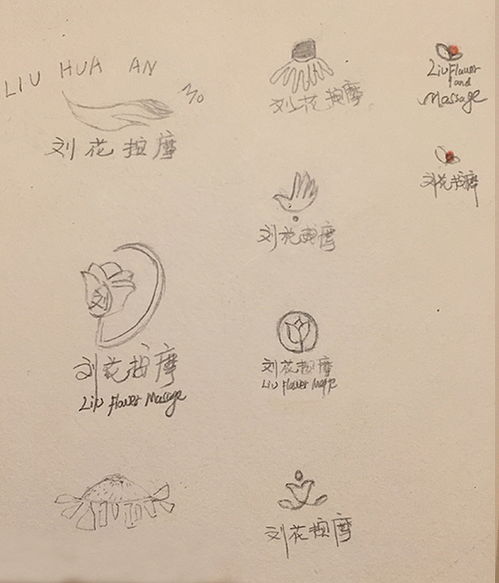 LIU HUA AN
刘花按摩
刘
刘花按摩
Liu flower Massage
刘花按摩
刘花按摩
刘花按摩
Liu flower
刘花按摩
Liu Flower
and
Massage
刘花按摩